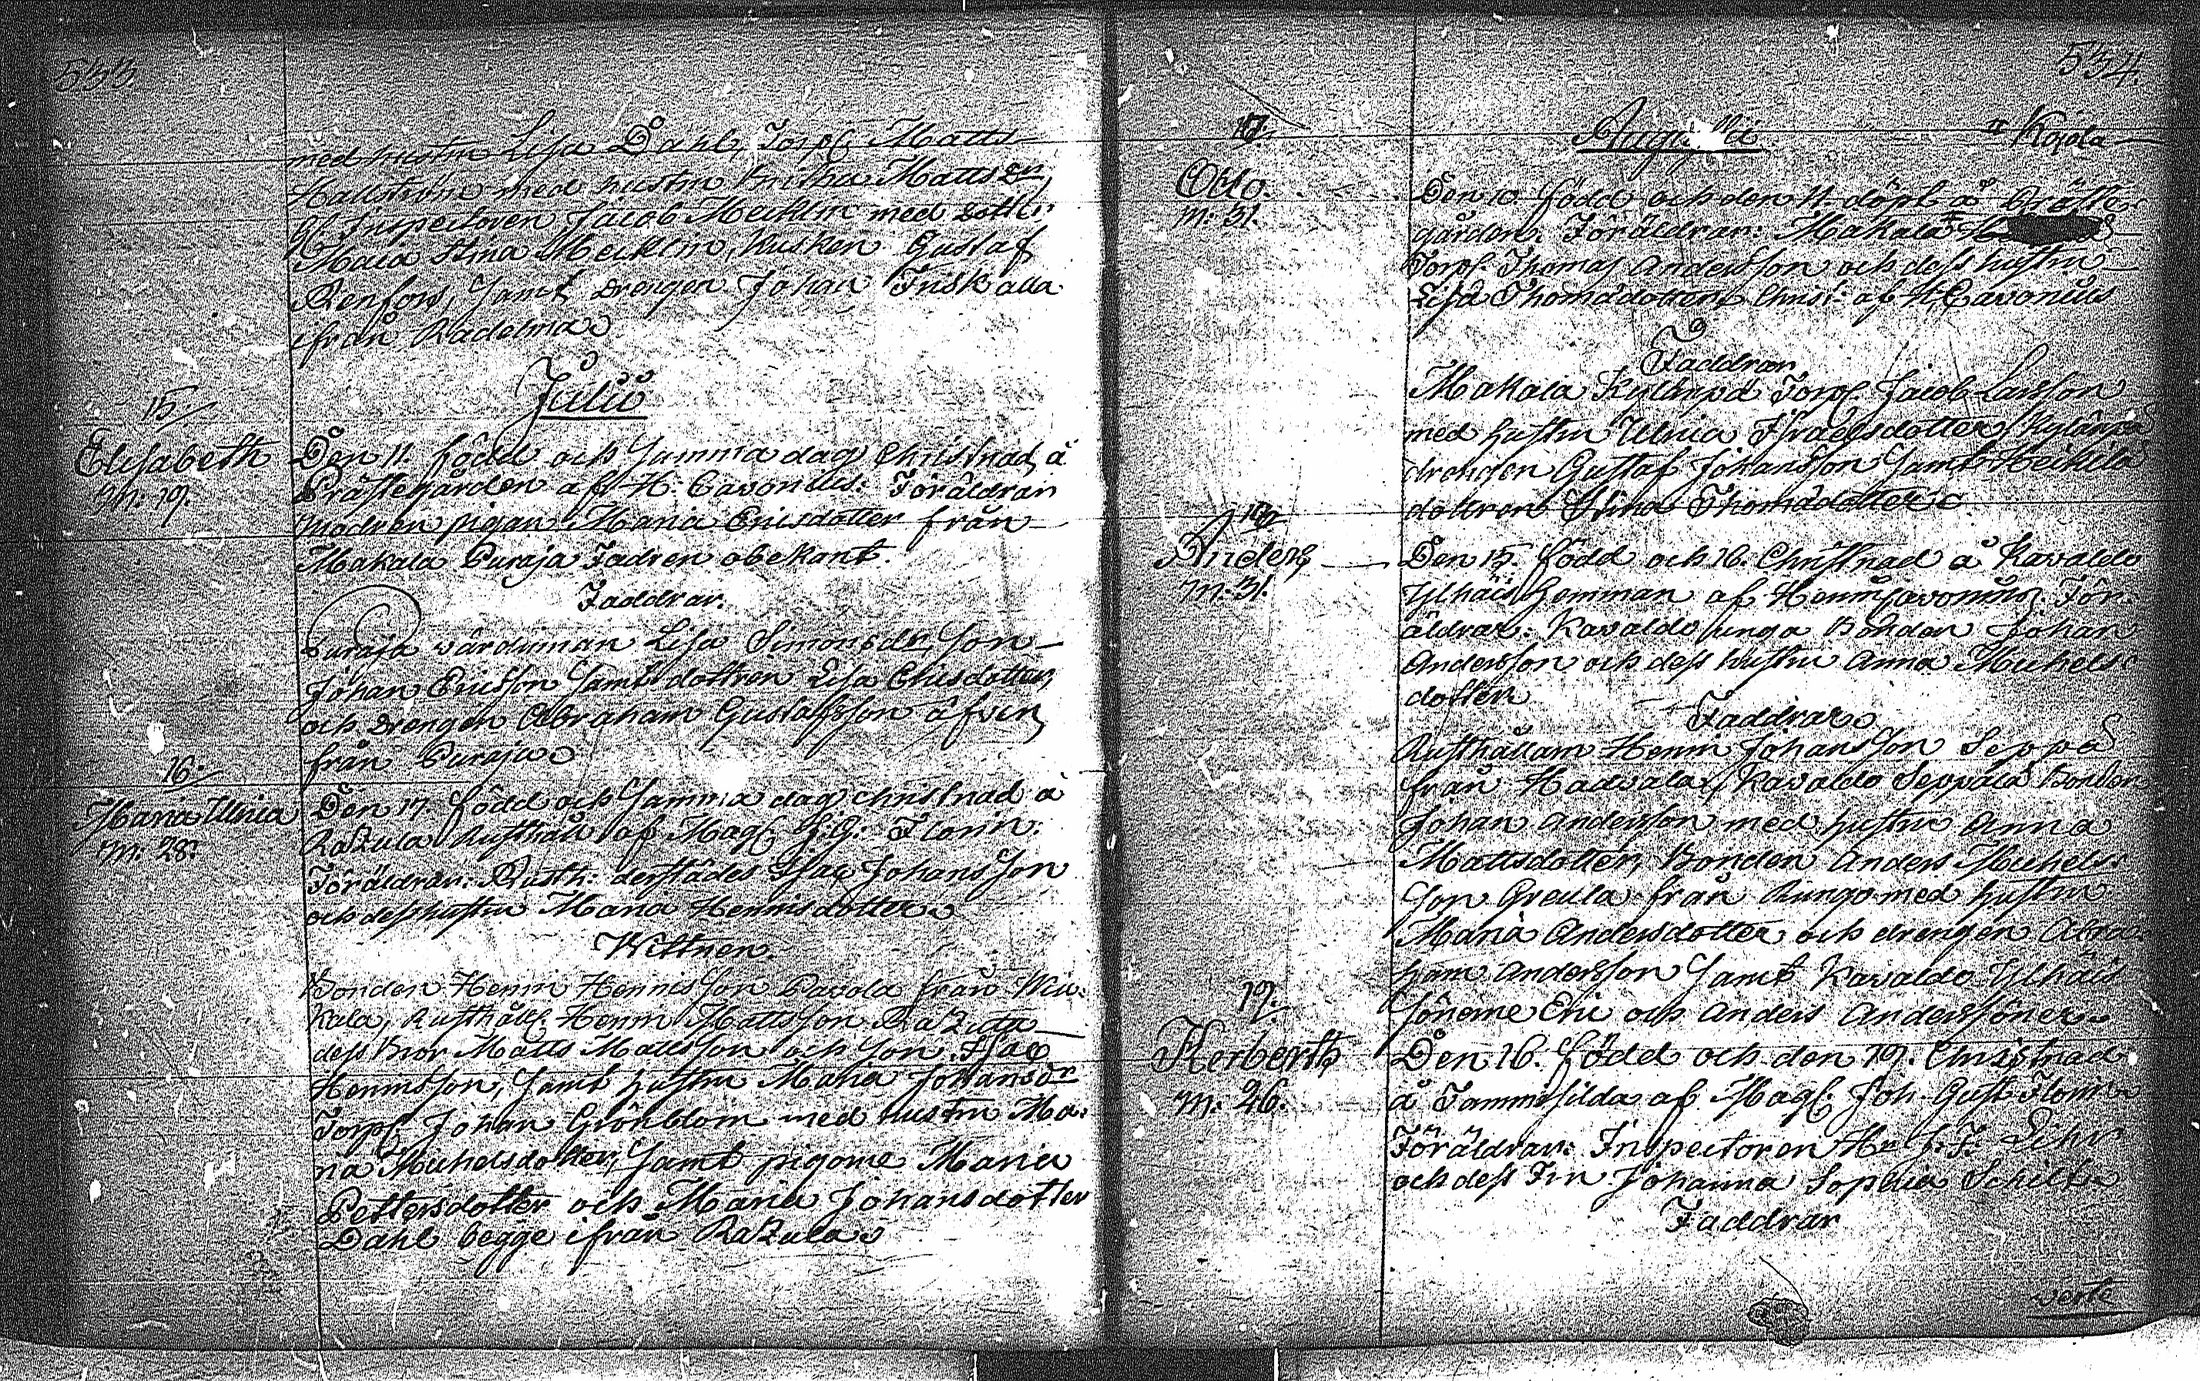 533
med hustru Lisa Dahl, Torp. Matts
Hallström med hustru Kristina Mattsdr
Inspectoren Jacob Mecklin med dotter
Maia Stina Mecklin, Kusken Gustaf
Renfors, Samt Drengen Johan Friskalla
ifrån Radelma
Julii
15
Elisabeth
m: 19.
Den 11. född och Samma dag Christnad å
Prästegården af H: Cavonius. Föräldrar
modren pigan Maria Ericsdotter från
Makala Puraja Fadren obekant.
Faddrar.
Puraja värdinnan Lisa Simonsdr, Son
Johan Ericsson Samt dottren Lisa Ericsdotter
och Drengen Abraham Gustafsson äfven
från Puraja
16.
Maria Ulrica
m: 28.
Den 17. född och Samma dag christnad å
Rusthåll af Mag. J. G. Florin.
Föräldrar: Rusth: derstädes Isac Johansson
och dess hustru Maria Henricsdotter
Wittnen.
Bonden Henric Henricsson Pavola från
kala, Rusthåll. Henric Mattsson
dess Bror Matts Mattsson och Son Isac
Henricsson, Samt hustru Maria Johansdr
Torp. Johan Grönblom med hustru Ma:
ria Michelsdotter, Samt pigorne Maria
Pettersdotter och Maria Johansdotter
Dahl begge ifrån
534
17.
Augusti
Kojola
Otto.
m: 31.
Den 10. född och den 11. döpt å Präste
gården. Föräldrar: Makala
Torp. Thomas Andersson och dess hustru
Lisa Thomädotter, Christ: af H. Cavonius
Faddrar
Makala Kylänpä Torp. Jacob Larsson
med hustru Ulrica Israelsdotter, Kylänpä
drengen Gustaf Johansson Samt Heikilä
dottren Stina Thomädotter
18
Anders
m: 31.
Den 15. född och 16. Christnad å Kavaldo
Ylhäis hemman af Herr Cavonius. För
äldrar: Kavaldo unga Bonden Johan
Andersson och dess hustru Anna Michels
dotter
Faddrar
Rusthållaren Henric Johansson Seppä
från Hadvala, Kavaldo Seppälä Bonden
Johan Andersson med hustru Anna
Mattsdotter, Bonden Anders Michels
son Greula från Rungo med hustru
Maria Andersdotter och drengen Abra
ham Andersson Samt Kavaldo Ylhäis
Sönerne Eric och Anders Anderssöner
19.
Herberth
m: 26.
Den 16. född och den 19. Christnad
å Tammsilda af Mag. Joh. Gust. Florin
Föräldrar: Inspectoren Hr J. F. Lihr
och dess Fru Johanna Sophia
Faddrar
verte